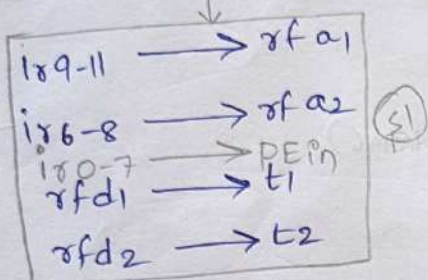 ir9-11 → rfa1
ir6-8 → rfa2
ir0-7 → PEin
rfd1 → t1
rfd2 → t2
S1